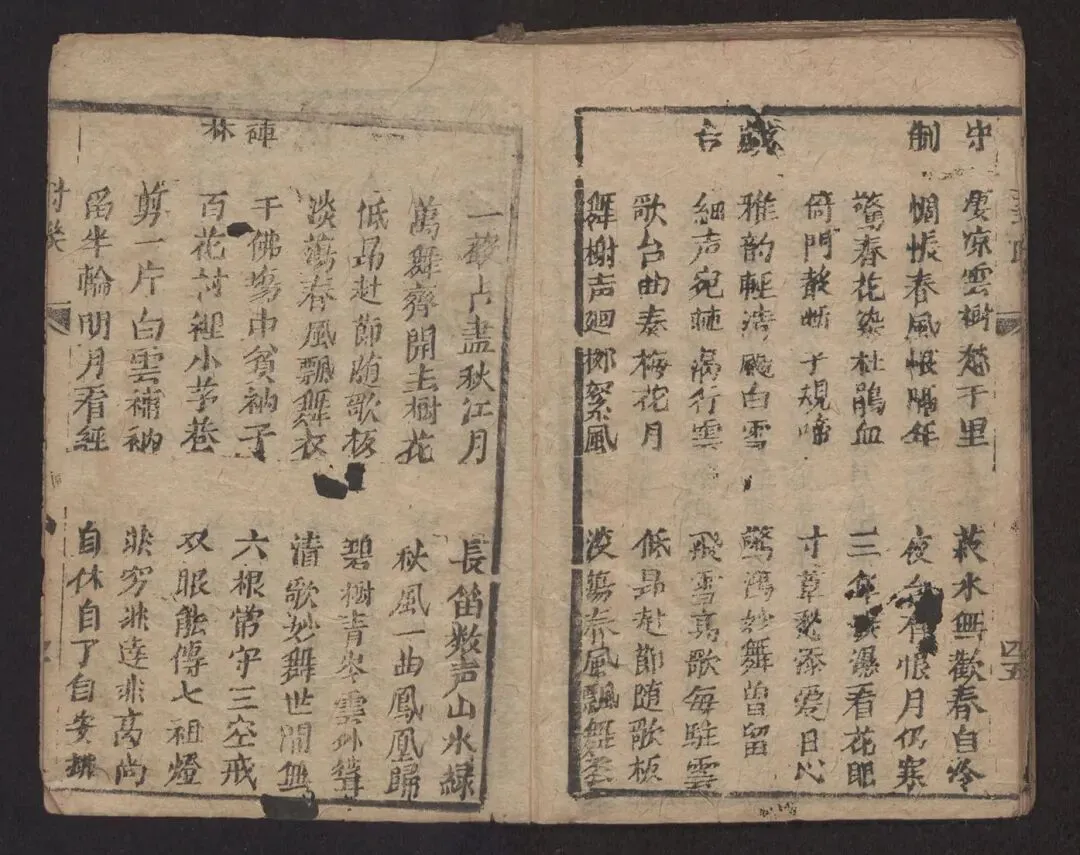 守制
凉雲樹愁千里
菽水無歡春自冷
惆悵春風恨隔年
夜台有恨月仍寒
驚春花染杜鵑血
三年淚瀑看花眼
倚門聲断子規啼
寸草愁添爱日心
戯台
雅韵輕清飃白雪
驚鴻妙舞曽留
細声宛轉遏行雲
飛雪高歌每駐雲
歌台曲奏梅花月
低昂赴節随歌板
舞榭声迴栁絮風
淡蕩春風飄舞
四五
一聲占盡秋江月
長笛数声山水緑
萬舞齊開玉樹花
秋風一曲鳳凰歸
低昂赴節随歌板
碧樹青岑雲外聳
淡蕩春風飄舞衣
清歌妙舞世間無
禅林
千佛塲中貧衲子
六根常守三空戒
百花村裡小茅巷
双眼能傳七祖燈
剪一片白雲補衲
非穷非達非高尚
留半輪明月看經
自休自了自安排